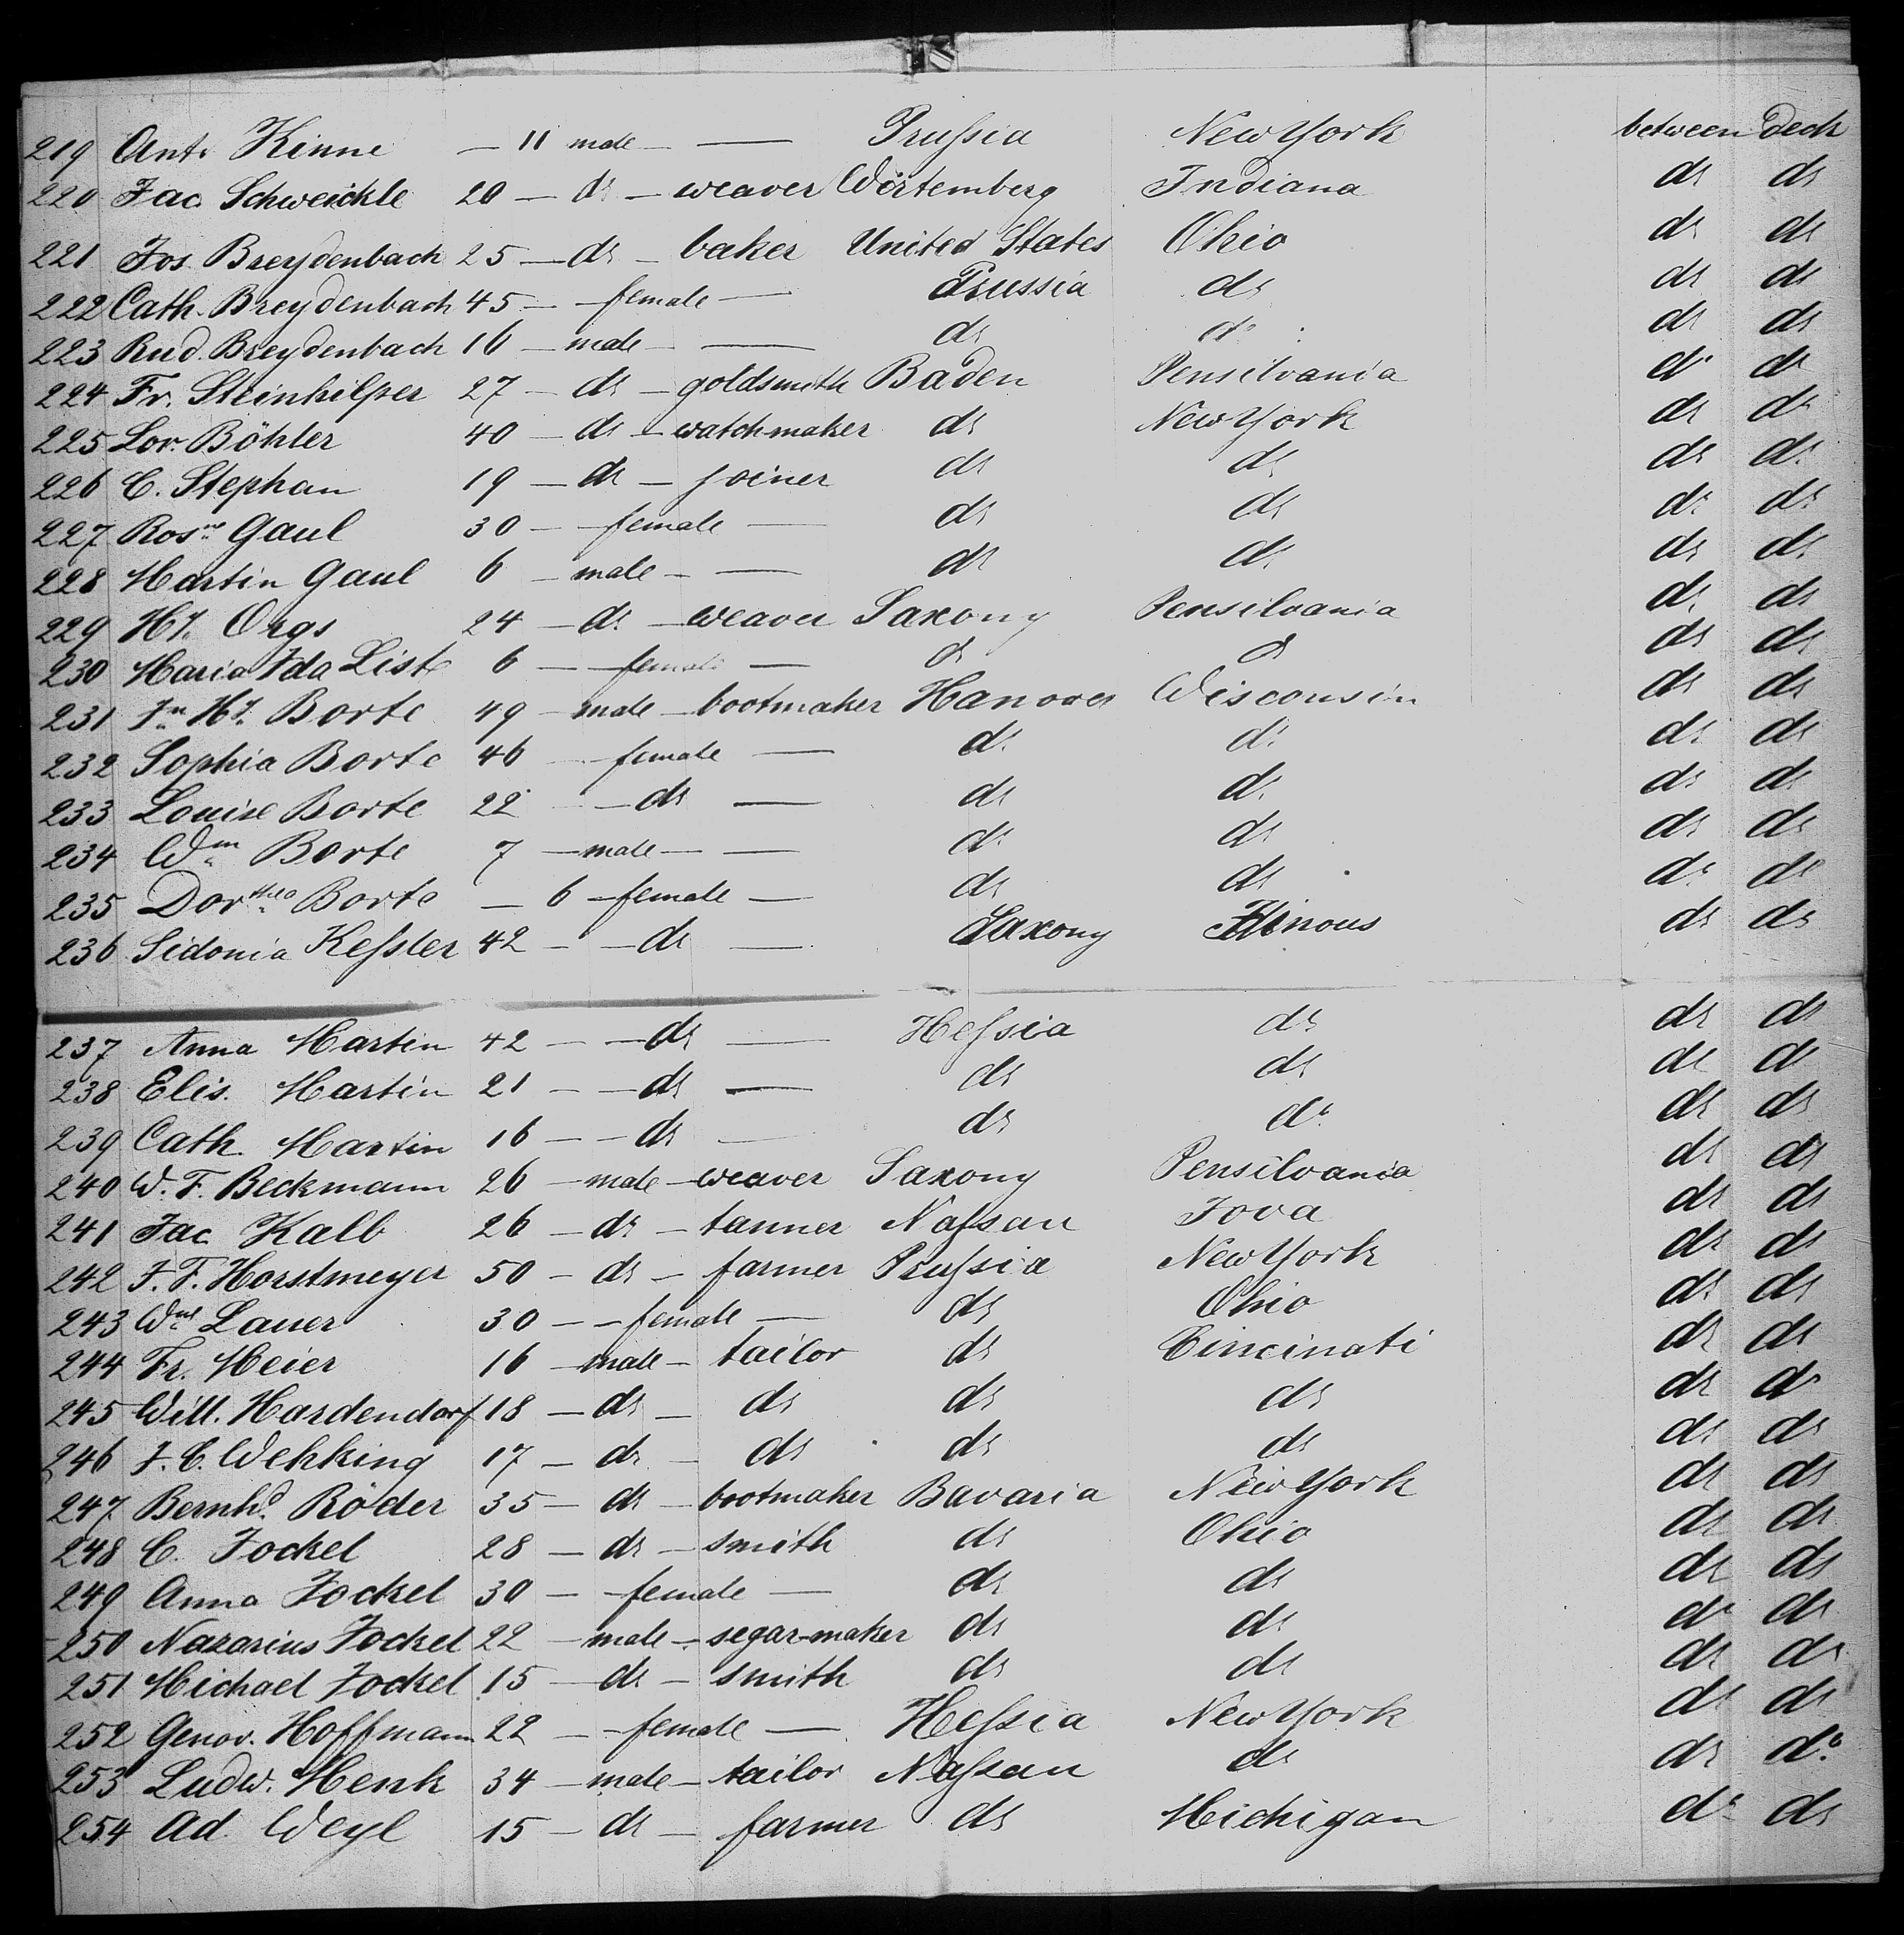 219 Ant. Kinne — 11 male — — Prussia New York between Deck
220 Jac. Schweickle 20 — do — weaver Würtemberg Indiana do do
221 Jos. Breydenbach 25 — do — baker United States Ohio do do
222 Cath. Breydenbach 45 — — female — Prussia do do do
223 Rud. Breydenbach 16 — male — — do do do do
224 Fr. Steinhilper 27 — do — goldsmith Baden Pensilvania do do
225 Lor. Böhler 40 — do — watch-maker do New York do do
226 C. Stephan 19 — do — joiner do do do do
227 Rosne Gaul 30 — — female — do do do do
228 Martin Gaul 6 — male — — do do do do
229 Hy. Orgs 24 — do — weaver Saxony Pensilvania do do
230 Maria Ida List 6 — — female — do do do do
231 Jn Hy. Borte 49 — male — bootmaker Hanover Wisconsin do do
232 Sophia Borte 46 — female — do do do do
233 Louise Borte 22 — do — do do do do
234 Wm Borte 7 — male — — do do do do
235 Dorthea Borte — 6 — female — do do do do
236 Sidonia Kessler 42 — — do — Saxony Illinous do do
237 Anna Martin 42 — — do — Hessia do do do
238 Elis. Martin 21 — — do — do do do do
239 Cath. Martin 16 — — do — do do do do
240 W. F. Beckmann 26 — male — weaver Saxony Pensilvania do do
241 Jac Kalb 26 — do — tanner Nassau Iova do do
242 J. F. Horstmeyer 50 — do — farmer Prussia New York do do
243 Wne Lauer 30 — — female — do Ohio do do
244 Fr. Meier 16 — male — tailor do Cincinati do do
245 Will. Hardendorf 18 — do — do do do do do
246 J. C. Wehking 17 — do — do do do do do
247 Bernhd. Röder 35 — do — bootmaker Bavaria New York do do
248 C. Jockel 28 — do — smith do Ohio do do
249 Anna Jockel 30 — — female — do do do do
250 Nazarius Jockel 22 — male — segar-maker do do do do
251 Michael Jockel 15 — do — smith do do do do
252 Genov. Hoffmann 22 — — female — Hessia New York do do
253 Ludw. Menk 34 — male — tailor Nassau do do do
254 Ad. Weyl 15 — do — farmer do Michigan do do